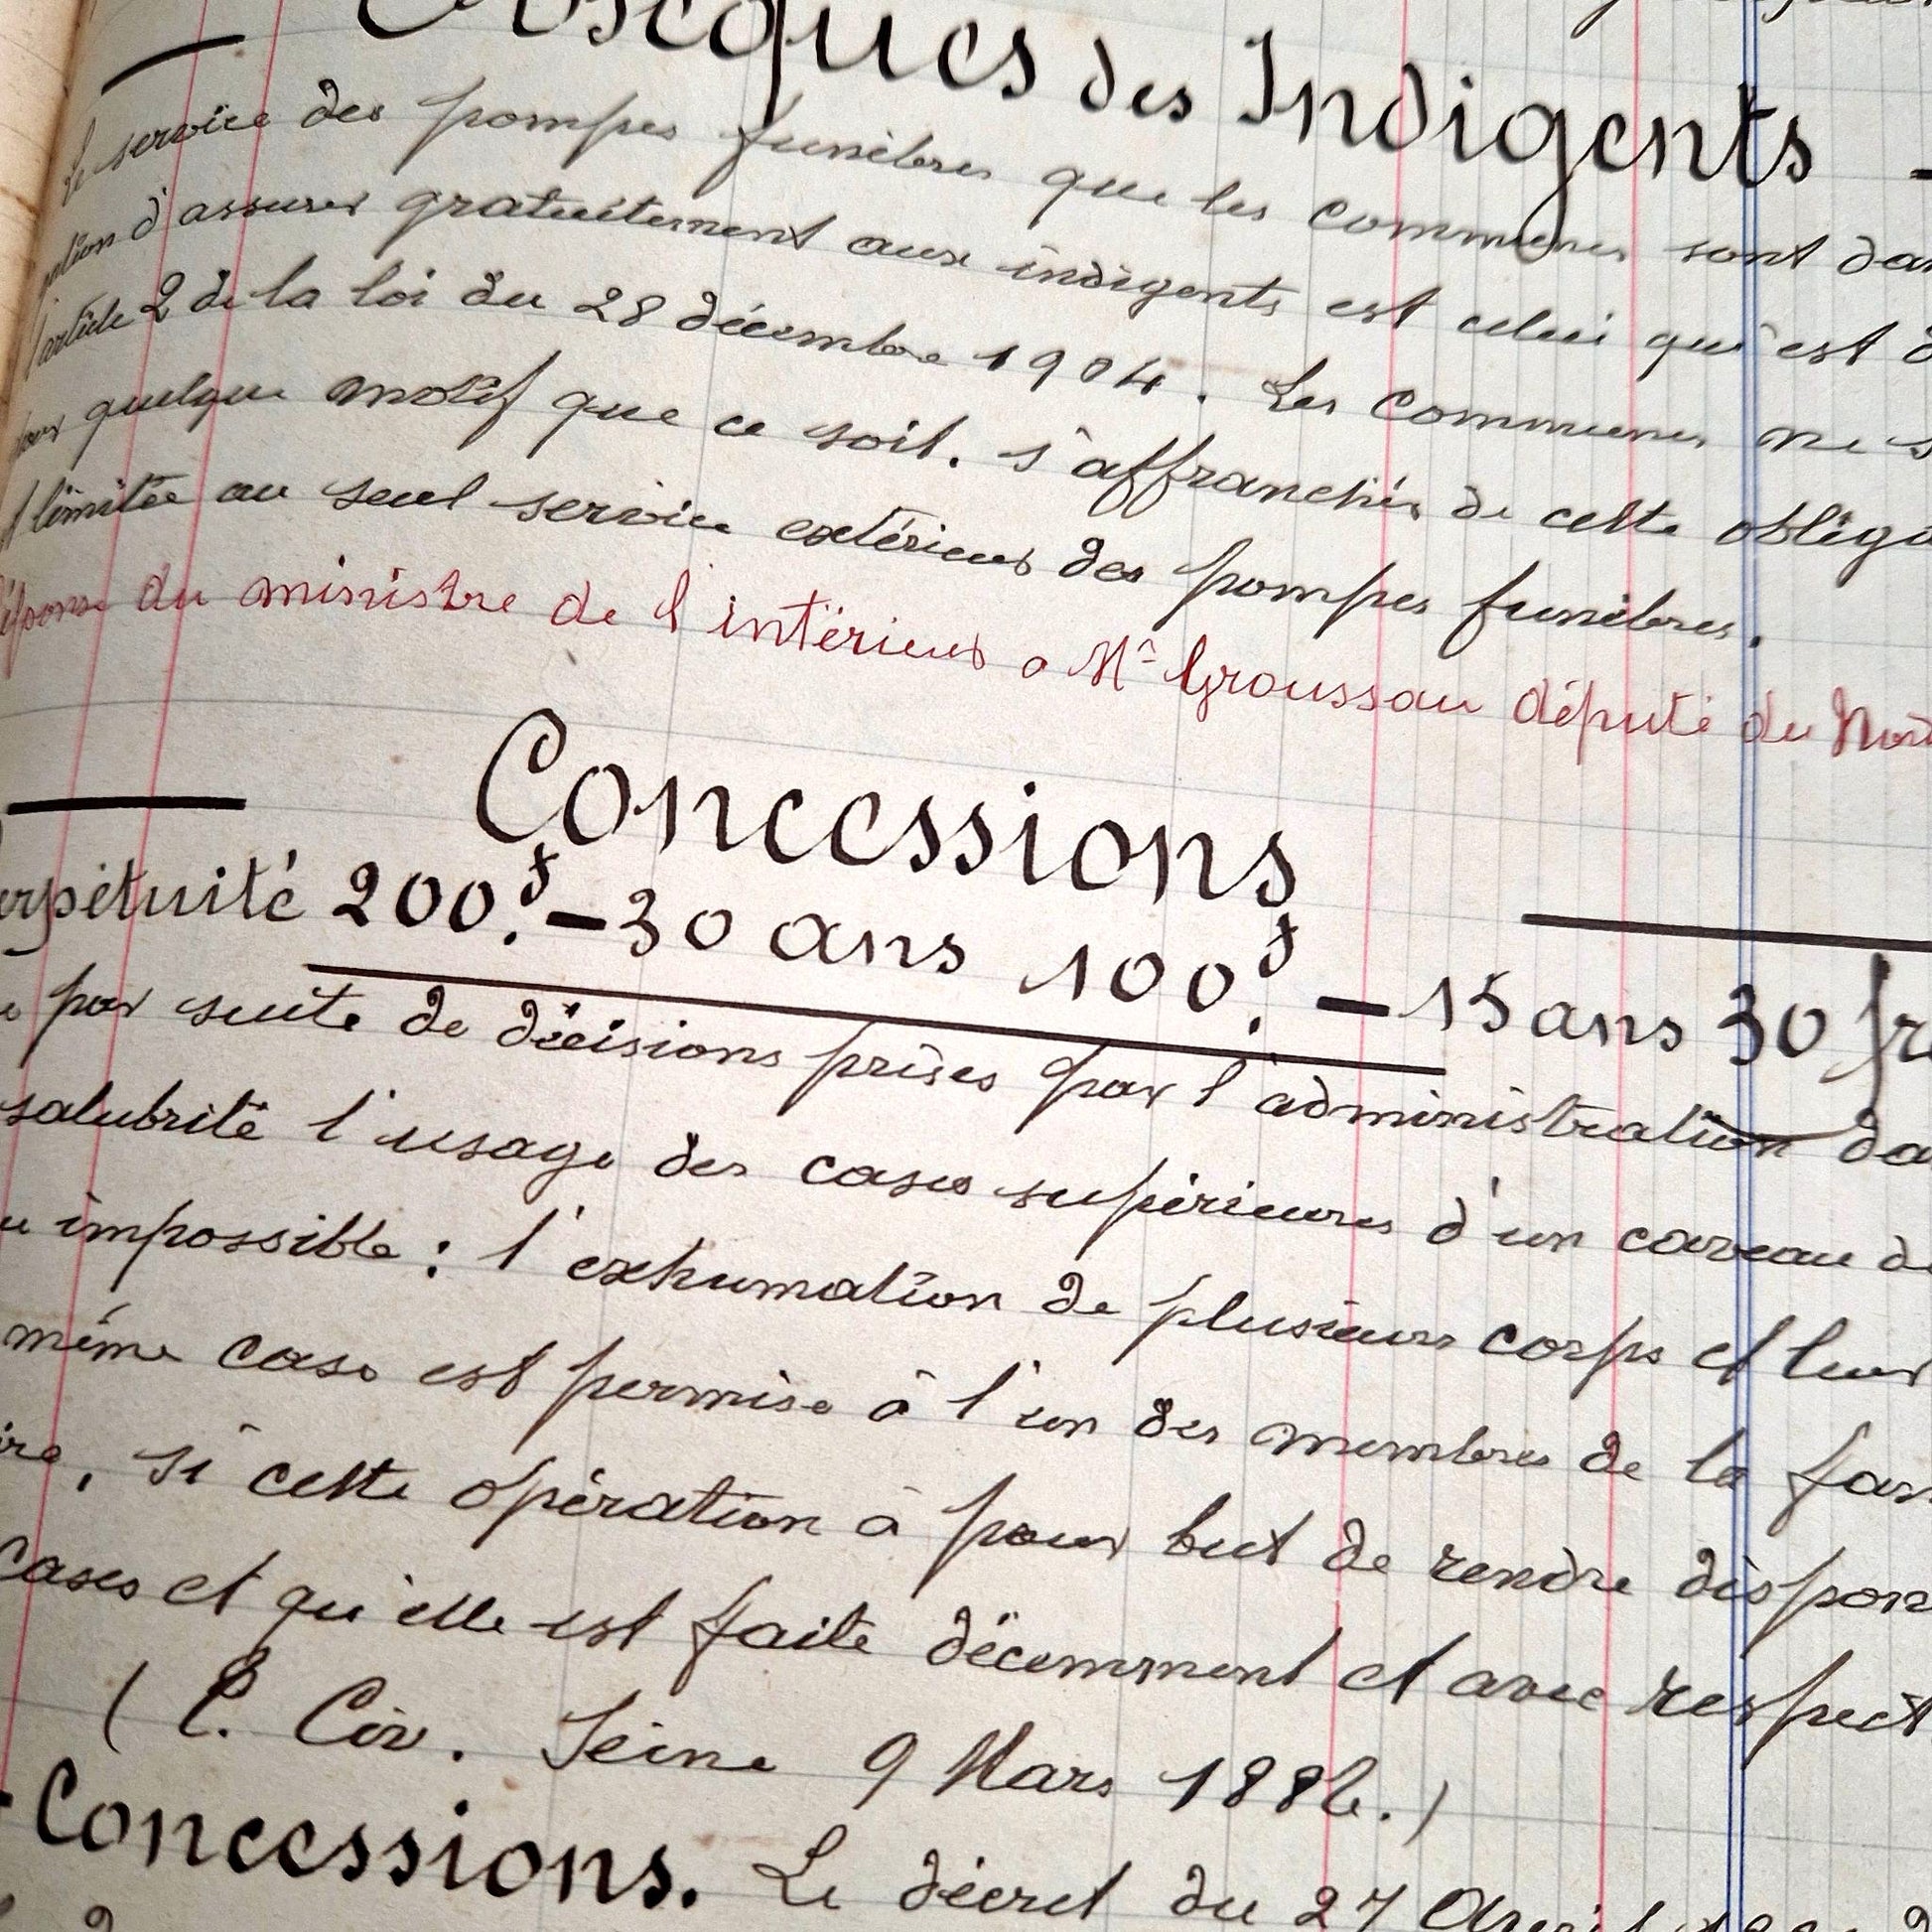 Obsèques des Indigents -
Le service des pompes funèbres que les communes sont dan
d'assurer gratuitement aux indigents est celui qui est d
l'article 2 de la loi du 28 décembre 1904. Les Communes ne s
quelque motif que ce soit. s'affranchir de cette obliga
limitée au seul service extérieur des pompes funèbres.
éponse du ministre de l'intérieur a Mr Groussau député du Nord
Concessions
erpétuité 200.f - 30 ans 100.f - 15 ans 30 fr
par suite de décisions prises par l'administration da
salubrité l'usage des cases supérieures d'un caveau de
impossible : l'exhumation de plusieurs corps et leur
même case est permise à l'un des membres de la fam
ire, si cette opération à pour but de rendre dispon
cases et qu'elle est faite décemment et avec respect
( C. Civ. Seine 9 Mars 1886.)
- Concessions. Le décret du 27 Avril